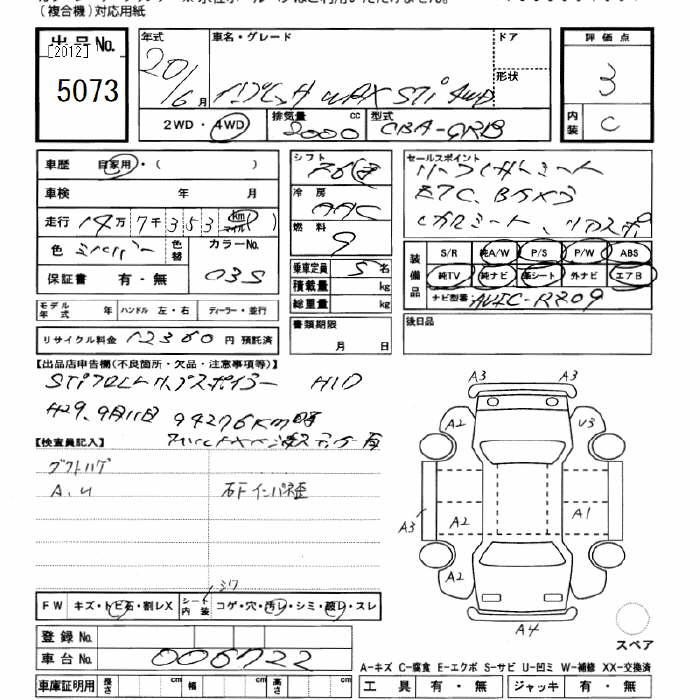 (複合機)対応用紙
出品No.
[2012]
5073
年式
車名・グレード
ドア
形状
評価点
3
201/6月
インプレッサ WRX STI 4WD
内装
C
2WD・4WD
排気量
cc
2000
型式
CBA-GRB
車歴
自家用・( )
車検
年
月
走行
14万7千353
km
マイル
( )
色
シルバー
色替
カラーNo.
03S
保証書
有・無
シフト
F6速
冷房
AAC
燃料
乗車定員
5名
積載量
kg
総重量
kg
書類期限
月
日
セールスポイント
ETC、
装備品
S/R
純A/W
P/S
P/W
ABS
純TV
純ナビ
革シート
外ナビ
エアB
ナビ型番
AVIC-RZ09
後日品
モデル年式
ハンドル 左・右
ディーラー・並行
リサイクル料金
12360円 預託済
【出品店申告欄(不良箇所・欠品・注意事項等)】
HID
H29.9月11日 94276km時
【検査員記入】
A、U
FW
キズ・トビ石・割レX
シート内装
コゲ・穴・汚レ・シミ・破レ・スレ
登録No.
車台No.
006722
車庫証明用
長さ
cm
幅
cm
高さ
cm
A3
A3
A2
U3
A3
A2
A1
A2
A2
A4
スペア
A-キズ C-腐食 E-エクボ S-サビ U-凹ミ W-補修 XX-交換済
工具
有・無
ジャッキ
有・無